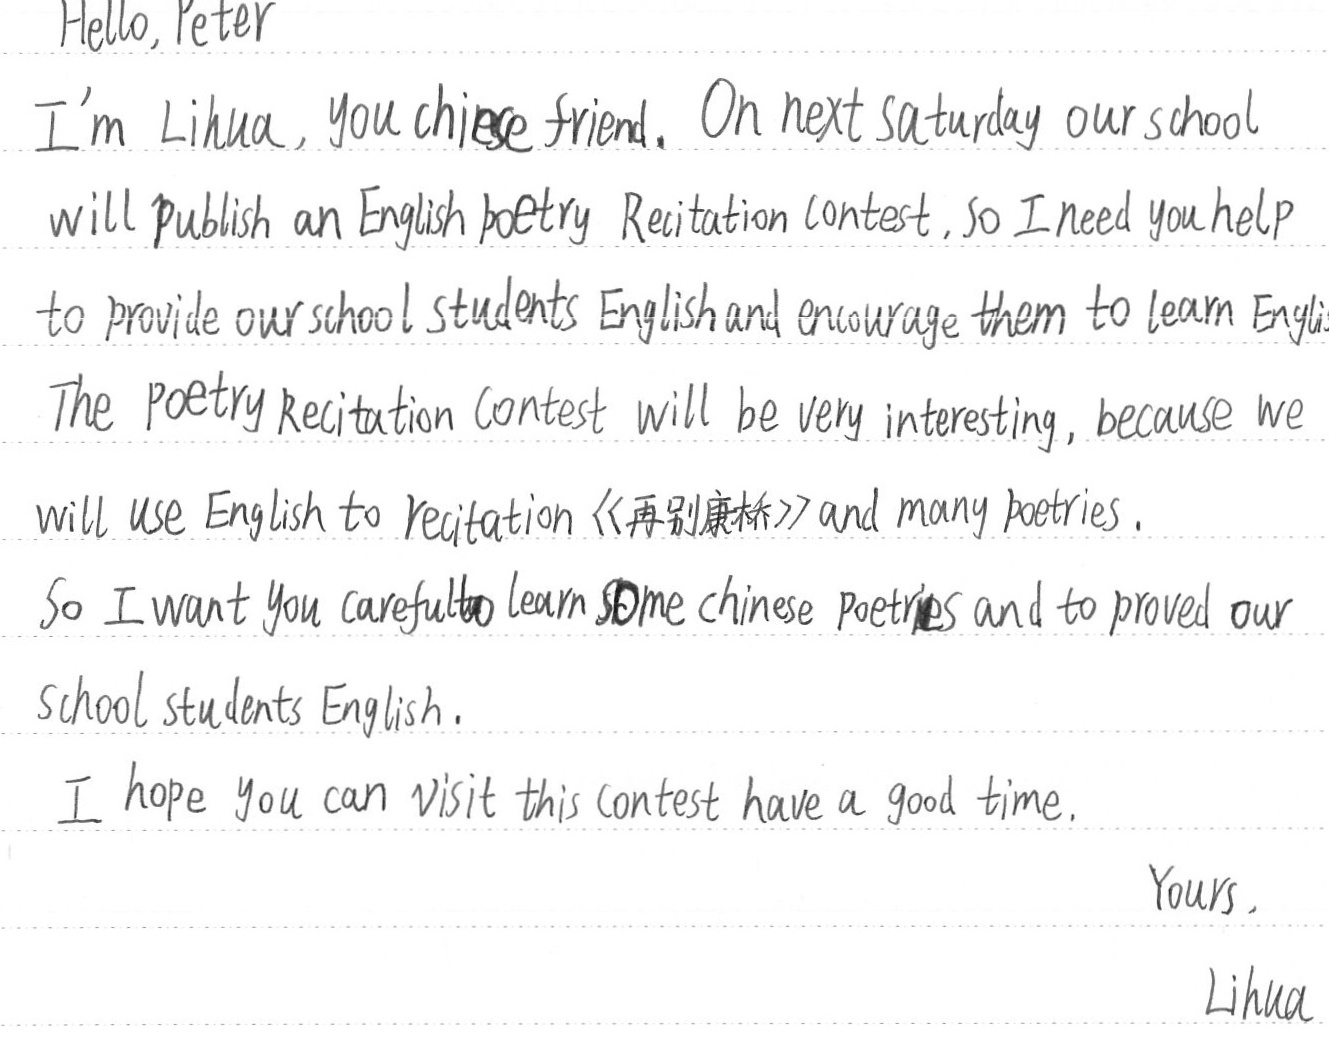 Hello, Peter
I'm Lihua, you chinese friend. On next saturday our school
will publish an English poetry Recitation Contest, So I need you help
to provide our school students English and encourage them to learn Englis
The poetry Recitation Contest will be very interesting, because we
will use English to recitation 《再别康桥》 and many poetries.
So I want you careful to learn some chinese poetries and to proved our
school students English.
I hope you can visit this contest have a good time.
Yours,
Lihua